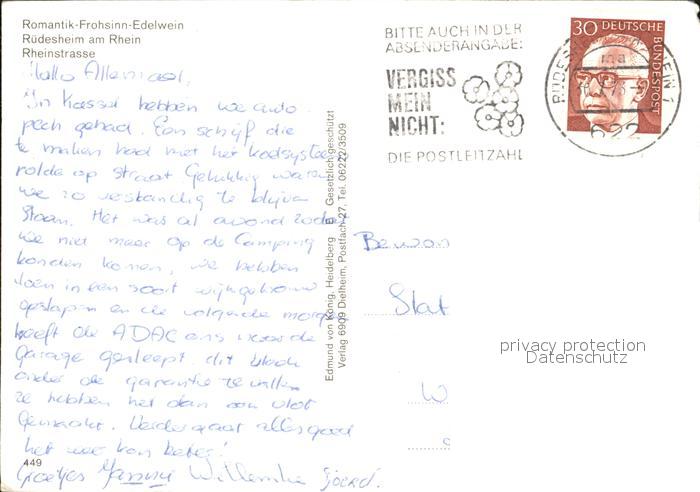 Romantik-Frohsinn-Edelwein
Rüdesheim am Rhein
Rheinstrasse
Hallo Allemaal,
In Kassel hebben we auto
pech gehad. Een schijf die
te maken had met het koelsysteem
rolde op straat Gelukkig waren
we zo verstandig te blijven
staan. Het was al avond zodat
we niet meer op de Camping
konden komen, we hebben
toen in een soort wijngebouw
geslapen en de volgende morgen
heeft de ADAC ons naar de
Garage gesleept dit
onder de garantie te vallen
ze hebben het dan ook vlot
gemaakt. Verder gaat alles goed
het weer kan beter!
Groetjes Willemke Sjoerd.
449
Edmund von König, Heidelberg E Gesetzlich geschützt
Verlag 6909 Dielheim, Postfach 27, Tel. 06222/3509
BITTE AUCH IN DER
ABSENDERANGABE:
VERGISS
MEIN
NICHT:
DIE POSTLEITZAHL
30 DEUTSCHE
BUNDESPOST
622
Bewon
Stat
W
privacy protection
Datenschutz